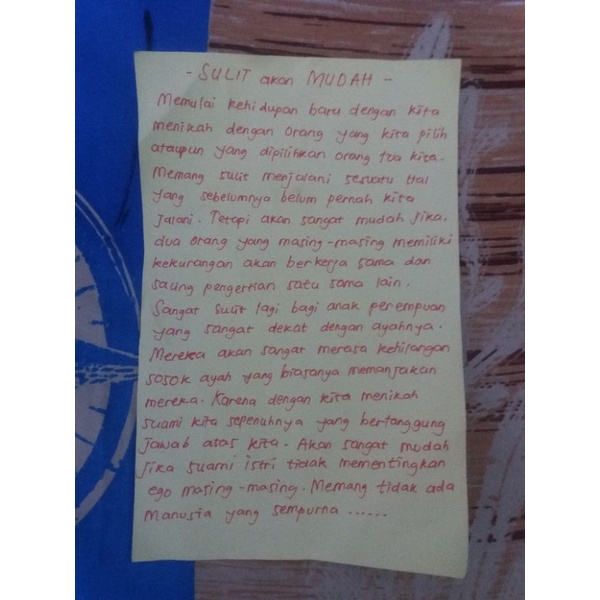 - SULIT akan MUDAH -
Memulai kehidupan baru dengan kita
menikah dengan orang yang kita pilih
ataupun yang dipilihkan orang tua kita.
Memang sulit menjalani sesuatu Hal
yang sebelumnya belum pernah kita
jalani. Tetapi akan sangat mudah jika,
dua orang yang masing-masing memiliki
kekurangan akan berkerja sama dan
saling pengertian satu sama lain.
Sangat sulit lagi bagi anak perempuan
yang sangat dekat dengan ayahnya.
Mereka akan sangat merasa kehilangan
sosok ayah yang biasanya memanjakan
mereka. Karena dengan kita menikah
suami kita sepenuhnya yang bertanggung
jawab atas kita. Akan sangat mudah
jika suami istri tidak mementingkan
ego masing-masing. Memang tidak ada
Manusia yang sempurna ......